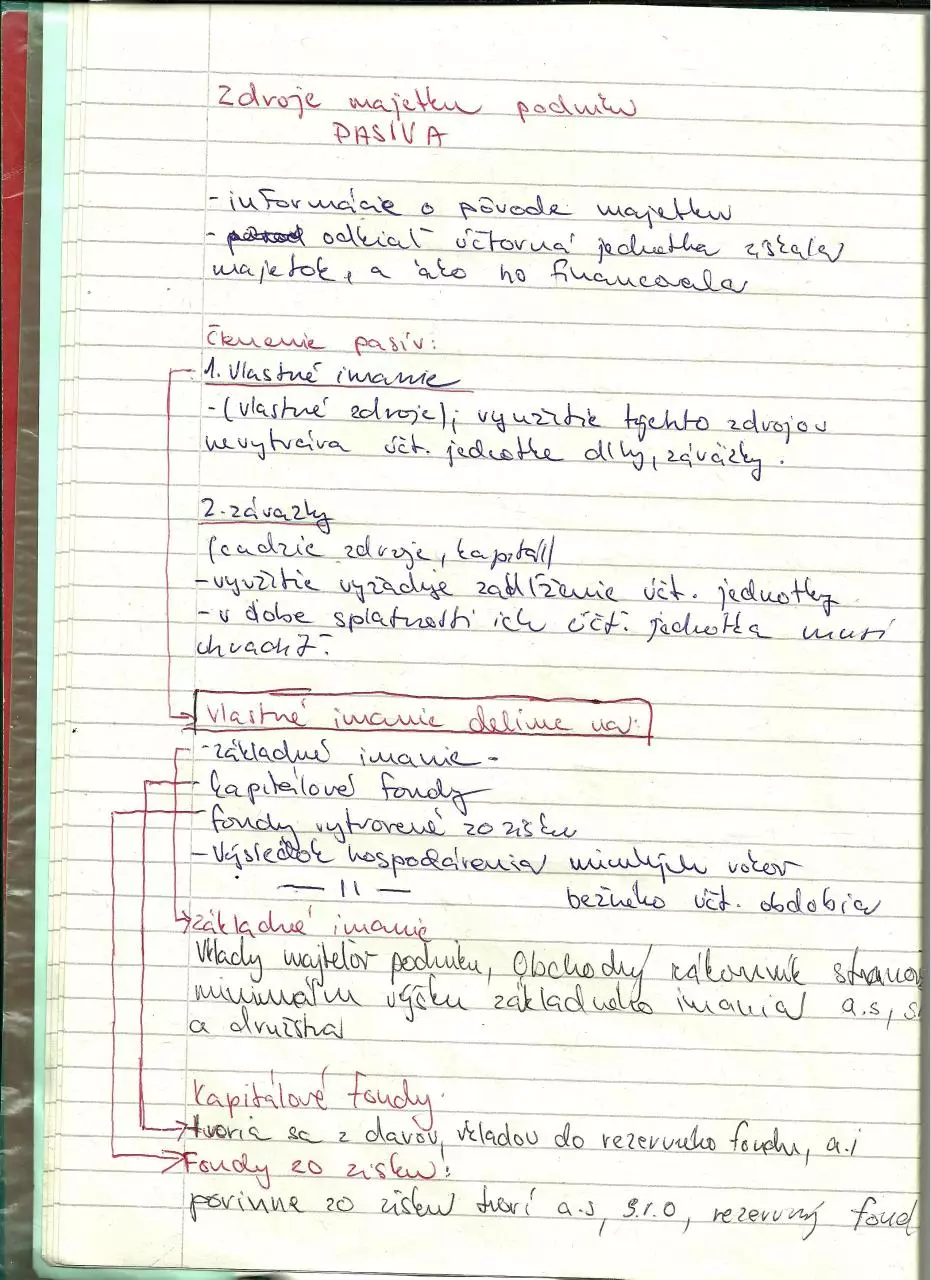 Zdroje majetku podniku
PASÍVA
- informácie o pôvode majetku
- odkiaľ účtovná jednotka získala
majetok, a ako ho financovala
Členenie pasív:
1. Vlastné imanie
- (vlastné zdroje); využitie týchto zdrojov
nevytvára účt. jednotke dlhy, záväzky.
2. záväzky
(cudzie zdroje, kapitál)
- využitie vyžaduje zadlženie účt. jednotky
- v dobe splatnosti ich účt. jednotka musí
uhradiť.
Vlastné imanie delíme na:
- základné imanie -
- kapitálové fondy
- fondy vytvorené zo zisku
- Výsledok hospodárenia minulých rokov
— 11 — bežného účt. obdobia
základné imanie
Vklady majteľov podniku, Obchodný zákonník stanov
minimáln výšku základného imania a.s, s
a družstva
Kapitálové fondy
tvoria sa z darov, vkladov do rezervného fondu, a.i
Fondy zo zisku:
povinne zo zisku tvorí a.s, s.r.o, rezervný fond